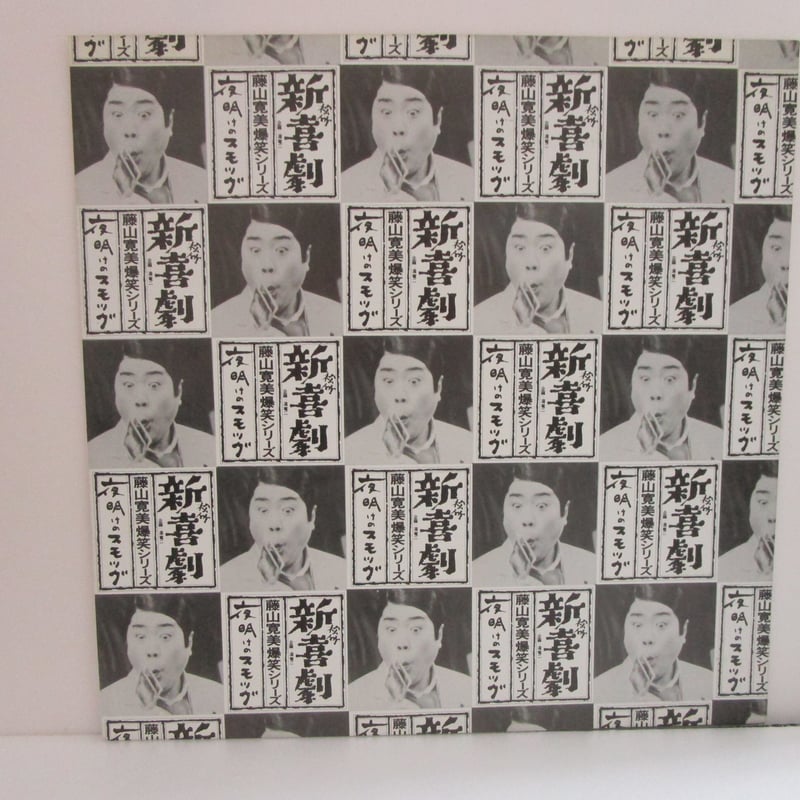 松竹新喜劇
藤山寛美爆笑シリーズ
夜明けのスモッグ
松竹新喜劇
藤山寛美爆笑シリーズ
夜明けのスモッグ
藤山寛美爆笑シリーズ
夜明けのスモッグ
松竹新喜劇
藤山寛美爆笑シリーズ
夜明けのスモッグ
松竹新喜劇
藤山寛美爆笑シリーズ
夜明けのスモッグ
松竹新喜劇
藤山寛美爆笑シリーズ
夜明けのスモッグ
松竹新喜劇
藤山寛美爆笑シリーズ
夜明けのスモッグ
松竹新喜劇
藤山寛美爆笑シリーズ
夜明けのスモッグ
藤山寛美爆笑シリーズ
夜明けのスモッグ
松竹新喜劇
藤山寛美爆笑シリーズ
夜明けのスモッグ
松竹新喜劇
藤山寛美爆笑シリーズ
夜明けのスモッグ
松竹新喜劇
藤山寛美爆笑シリーズ
夜明けのスモッグ
松竹新喜劇
藤山寛美爆笑シリーズ
夜明けのスモッグ
松竹新喜劇
藤山寛美爆笑シリーズ
夜明けのスモッグ
藤山寛美爆笑シリーズ
夜明けのスモッグ